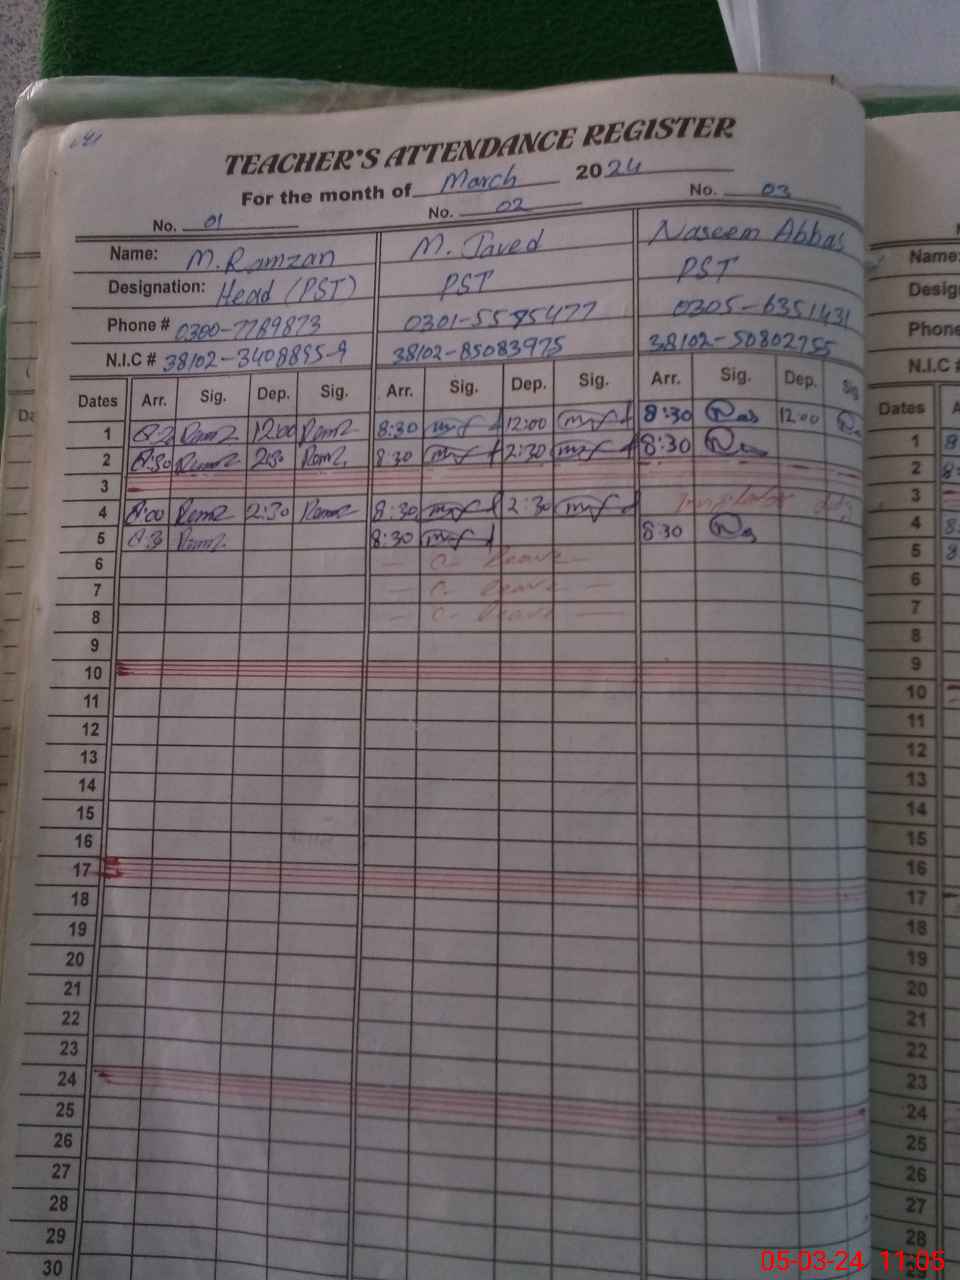 TEACHER'S ATTENDANCE REGISTER
For the month of March 2024
No. 01 No. 02 No. 03
Name: M. Ramzan M. Javed Naseem Abbas
Designation: Head (PST) PST PST
Phone # 0300-7789873 0301-5595477 0305-6351431
N.I.C # 38102-3408895-9 38102-85083975 38102-50802755
Dates Arr. Sig. Dep. Sig. Arr. Sig. Dep. Sig. Arr. Sig. Dep. Sig
1 12:00 8:30 12:00 8:30 12:00
2 8:30 2:30 8:30 2:30 8:30
3
4 8:00 2:30 8:30 2:30
5 8:30 8:30
6 - C- Leave -
7 - C- Leave -
8 - C- Leave -
9
10
11
12
13
14
15
16
17
18
19
20
21
22
23
24
25
26
27
28
29
30
Name:
Desig
Phone
N.I.C #
Dates A
1
2
3
4
5
6
7
8
9
10
11
12
13
14
15
16
17
18
19
20
21
22
23
24
25
26
27
28
05-03-24 11:05